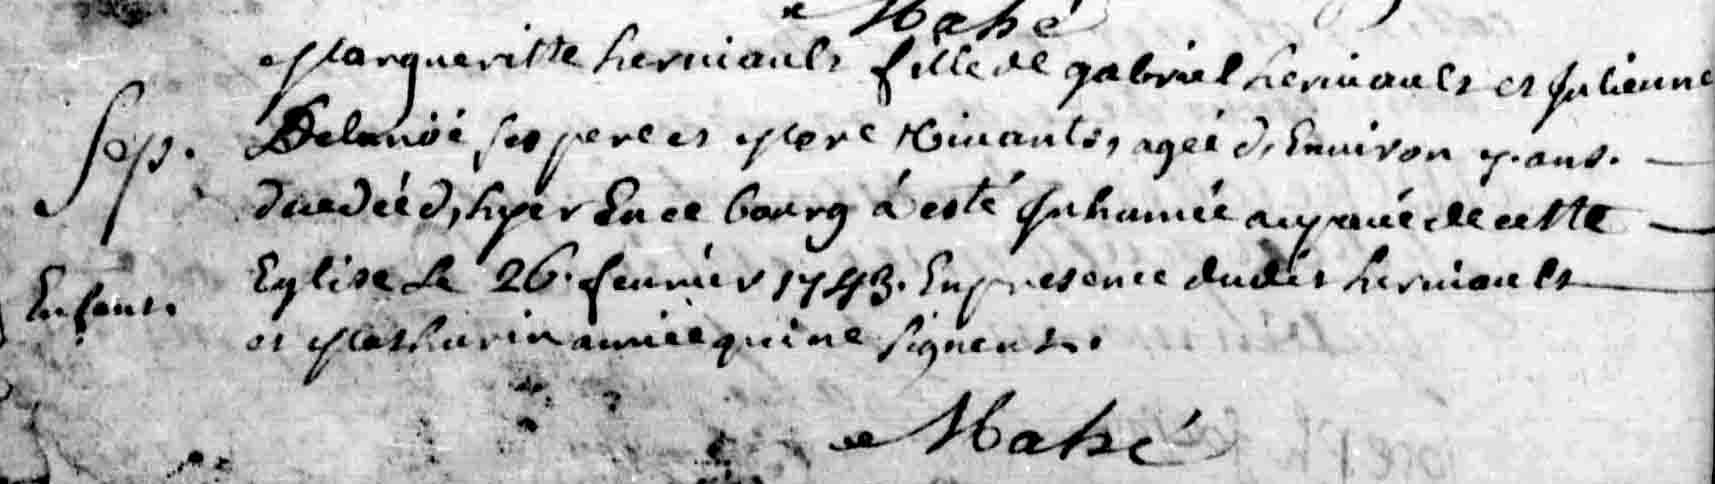 Mahé
Margueritte herviault fille de gabriel herviault et Julienne
Sep. Delanöé ses pere et Mere vivants, agée d'Environ ans.
décédée d'hyer En ce bourg á esté Inhumée au pavé de cette
Enfant. Eglise Le 26. fevrier 1743. En presence dudit herviault
et Mathurin qui ne signent.
Mahé